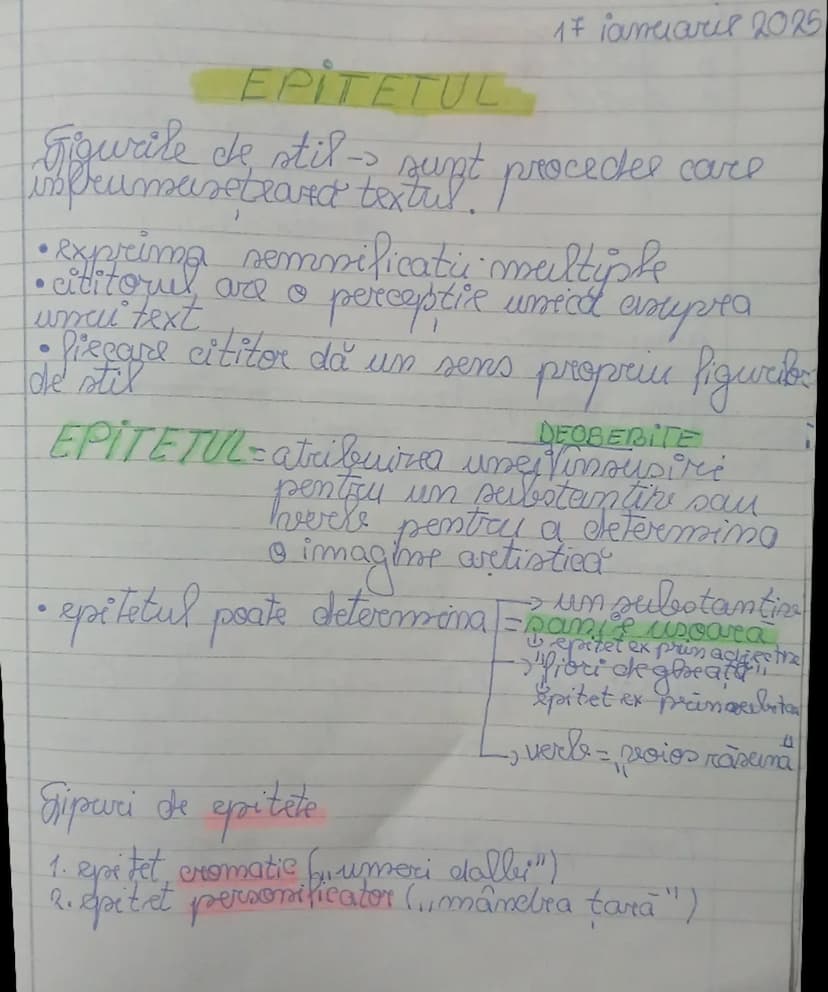 17 ianuarie 2025
EPITETUL
Figurile de stil → sunt procedee care
înfrumusețează textul.
• exprima semnificatii multiple
• cititorul are o percepție unică asupra
unui text
• fiecare cititor dă un sens propriu figurilor
de stil
DEOSEBITE
EPITETUL = atribuirea unei însusiri
pentru un substantiv sau
verb pentru a determina
o imagine artistică
• epitetul poate determina → un substantiv
= pan usoară
↓ epitet ex prin adjectiv
→ "fiori de gheață"
epitet ex prin substan
→ verb = "voios răsună"
Tipuri de epitete
1. epitet cromatic („umeri dalbi")
2. epitet personificator („mândra țară")